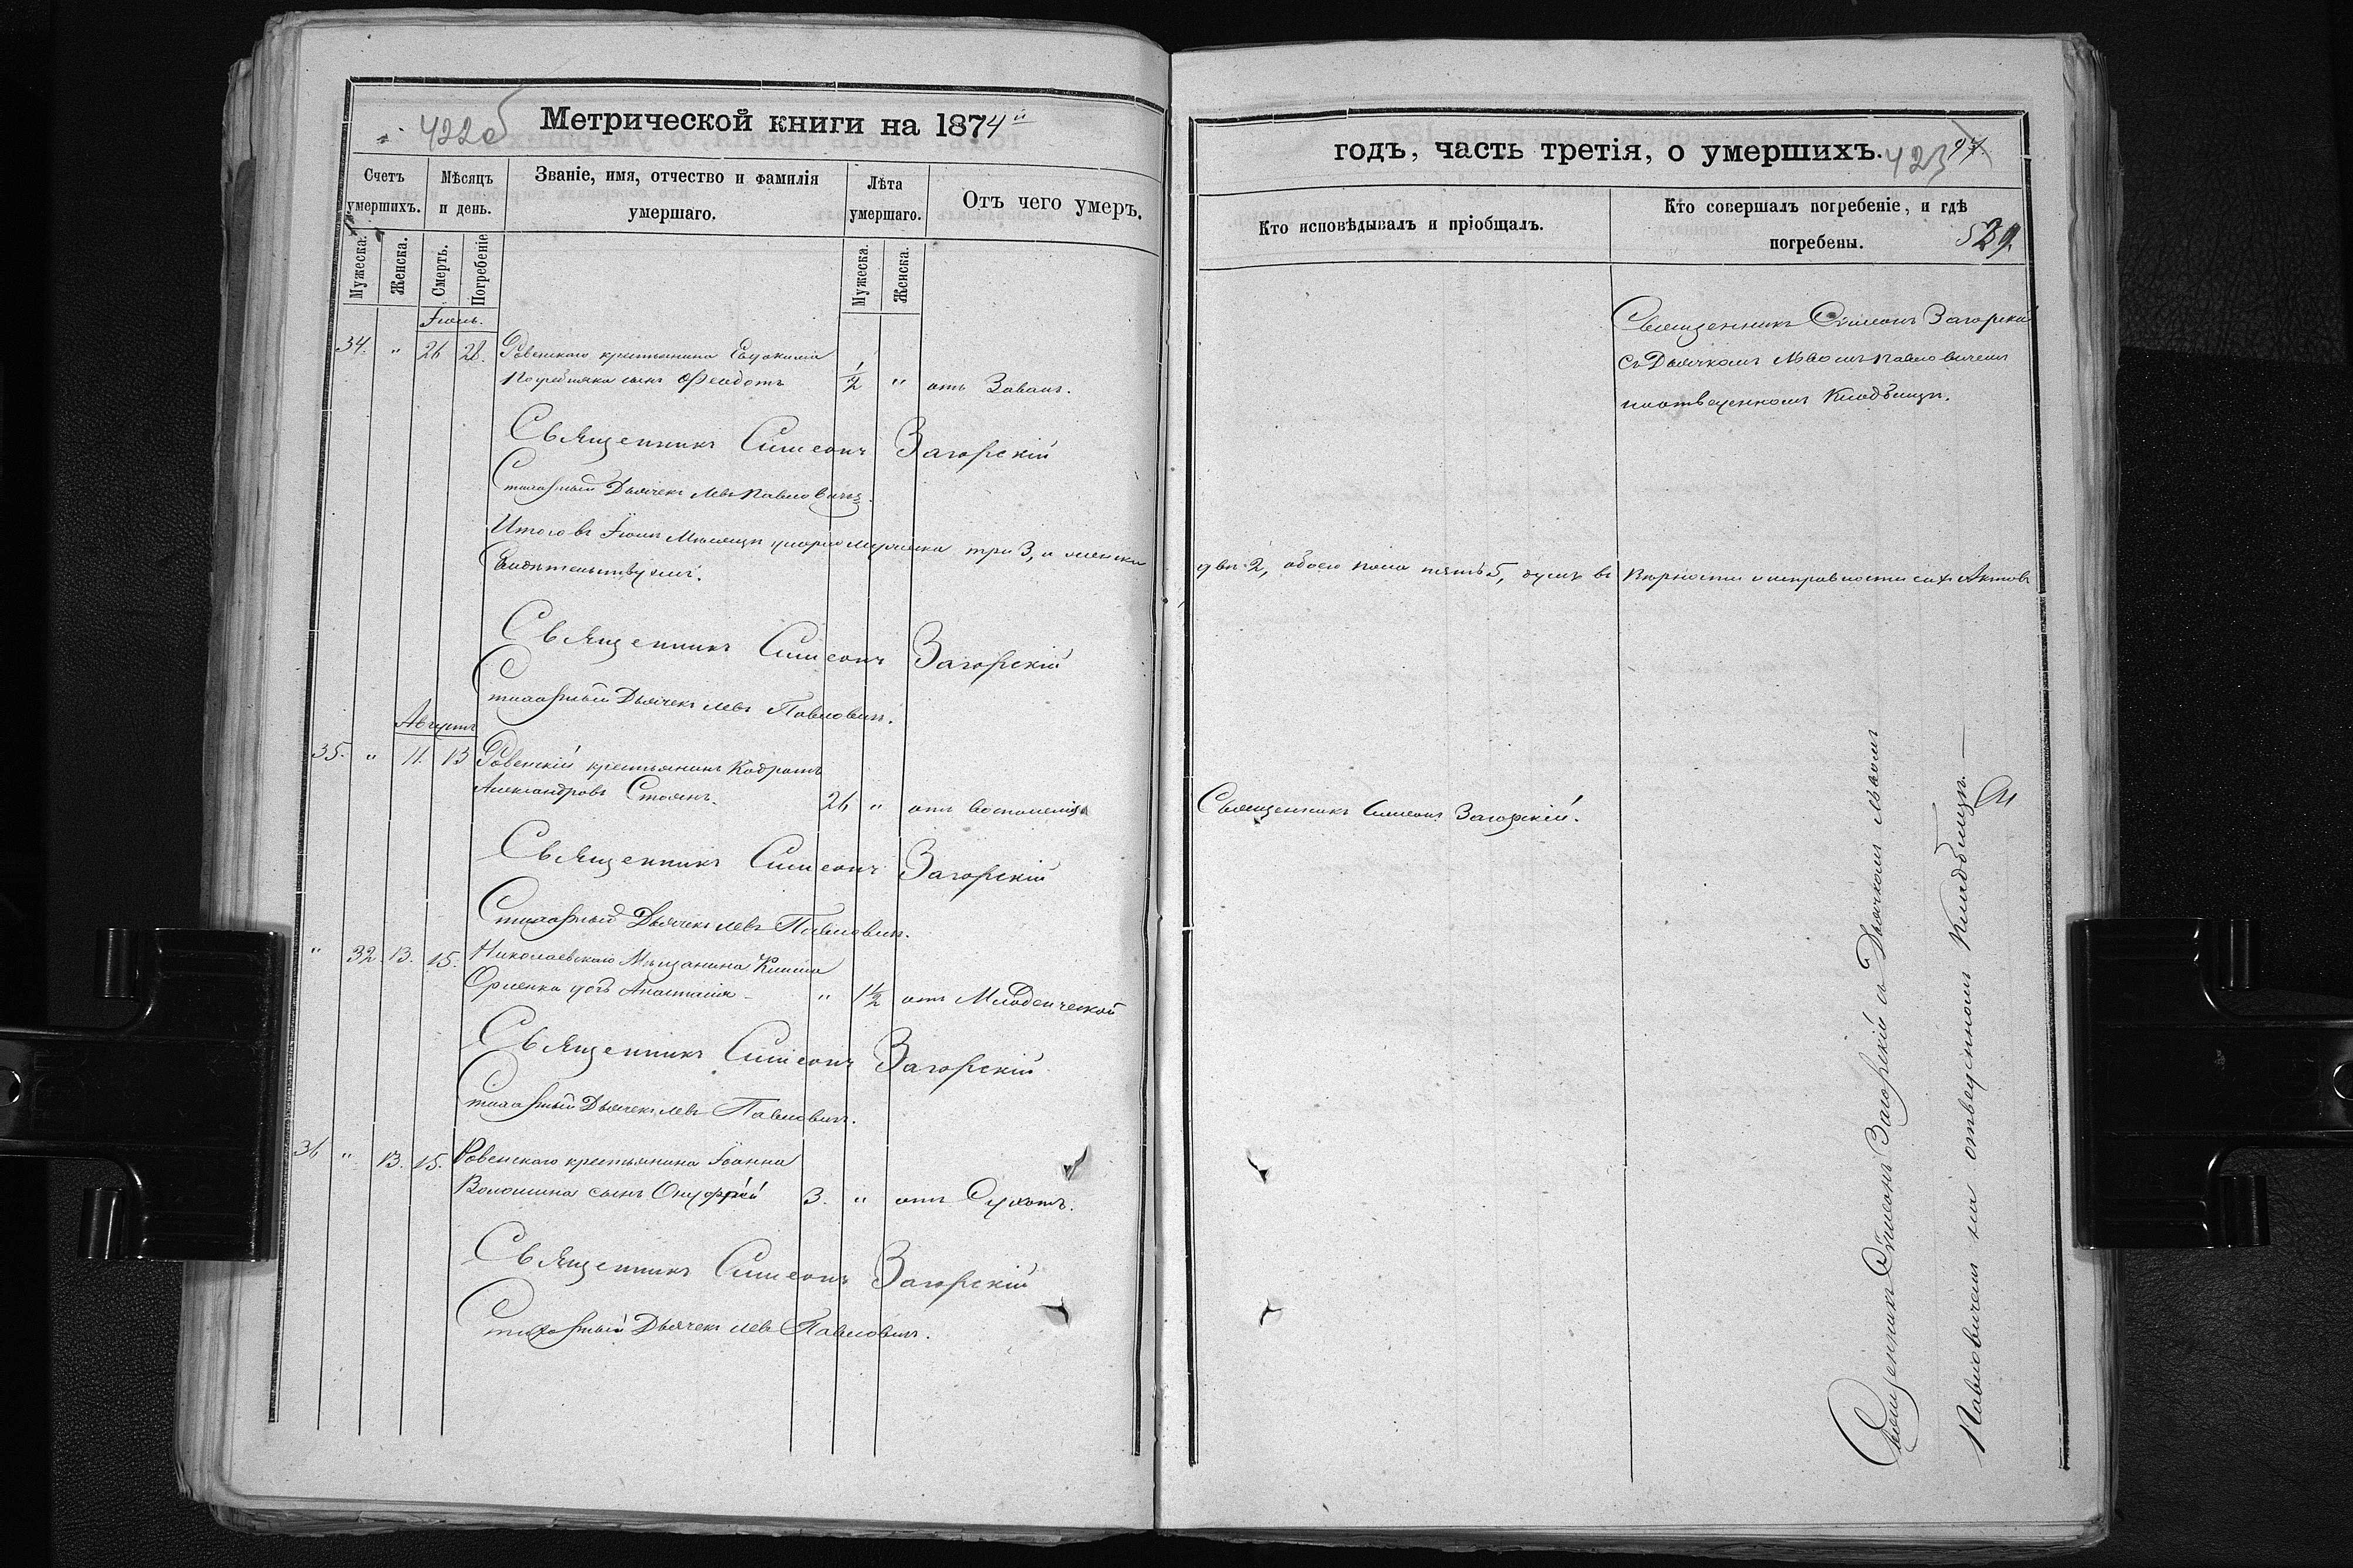 422об
Метрической книги на 1874й
Счетъ умершихъ.
Мѣсяцъ и день.
Званіе, имя, отчество и фамилія умершаго.
Лѣта умершаго.
Отъ чего умеръ.
Мужеска.
Женска.
Смерть.
Погребеніе
Мужеска.
Женска.
Іюль.
34. " 26 28. Ровенскаго крестьянина Евдокима
сынъ Феодотъ 1/2 " отъ Завалъ.
Священникъ Симеонъ Загорскій
Стихарный Дьячекъ Левъ Павловичъ.
Итого въ Іюлѣ Мѣсяцѣ умерло мужеска три 3, а женска
Свидѣтельствуемъ.
Священникъ Симеонъ Загорскій
Стихарный Дьячекъ Левъ Павловичъ.
Августъ
35. " 11. 13 Ровенскій крестьянинъ Кодратъ
Александровъ Стоянъ. 26 " отъ воспаленія
Священникъ Симеонъ Загорскій
Стихарный Дьячекъ Левъ Павловичъ.
" 32. 13. 15. Николаевскаго Мѣщанина Клима
дочь Анастасія " 1 1/2 отъ Младенческой
Священникъ Симеонъ Загорскій
Стихарный Дьячекъ Левъ Павловичъ.
36 " 13. 15. Ровенскаго крестьянина Іоанна
Волошина сынъ Онуфрій 3. " отъ Сухотъ.
Священникъ Симеонъ Загорскій
Стихарный Дьячекъ Левъ Павловичъ.
годъ, часть третія, о умершихъ.
423
Кто исповѣдывалъ и пріобщалъ.
Кто совершалъ погребеніе, и гдѣ погребены.
529
Священникъ Симеонъ Загорскій
съ Дьячкомъ Львомъ Павловичемъ
на отведенномъ Кладбищѣ.
двѣ 2, обоего пола пять 5, душъ въ вѣрности и исправности сихъ Актовъ
Священникъ Симеонъ Загорскій.
Священникъ Симеонъ Загорскій съ Дьячкомъ Львомъ
Павловичемъ на отведенномъ Кладбищѣ.